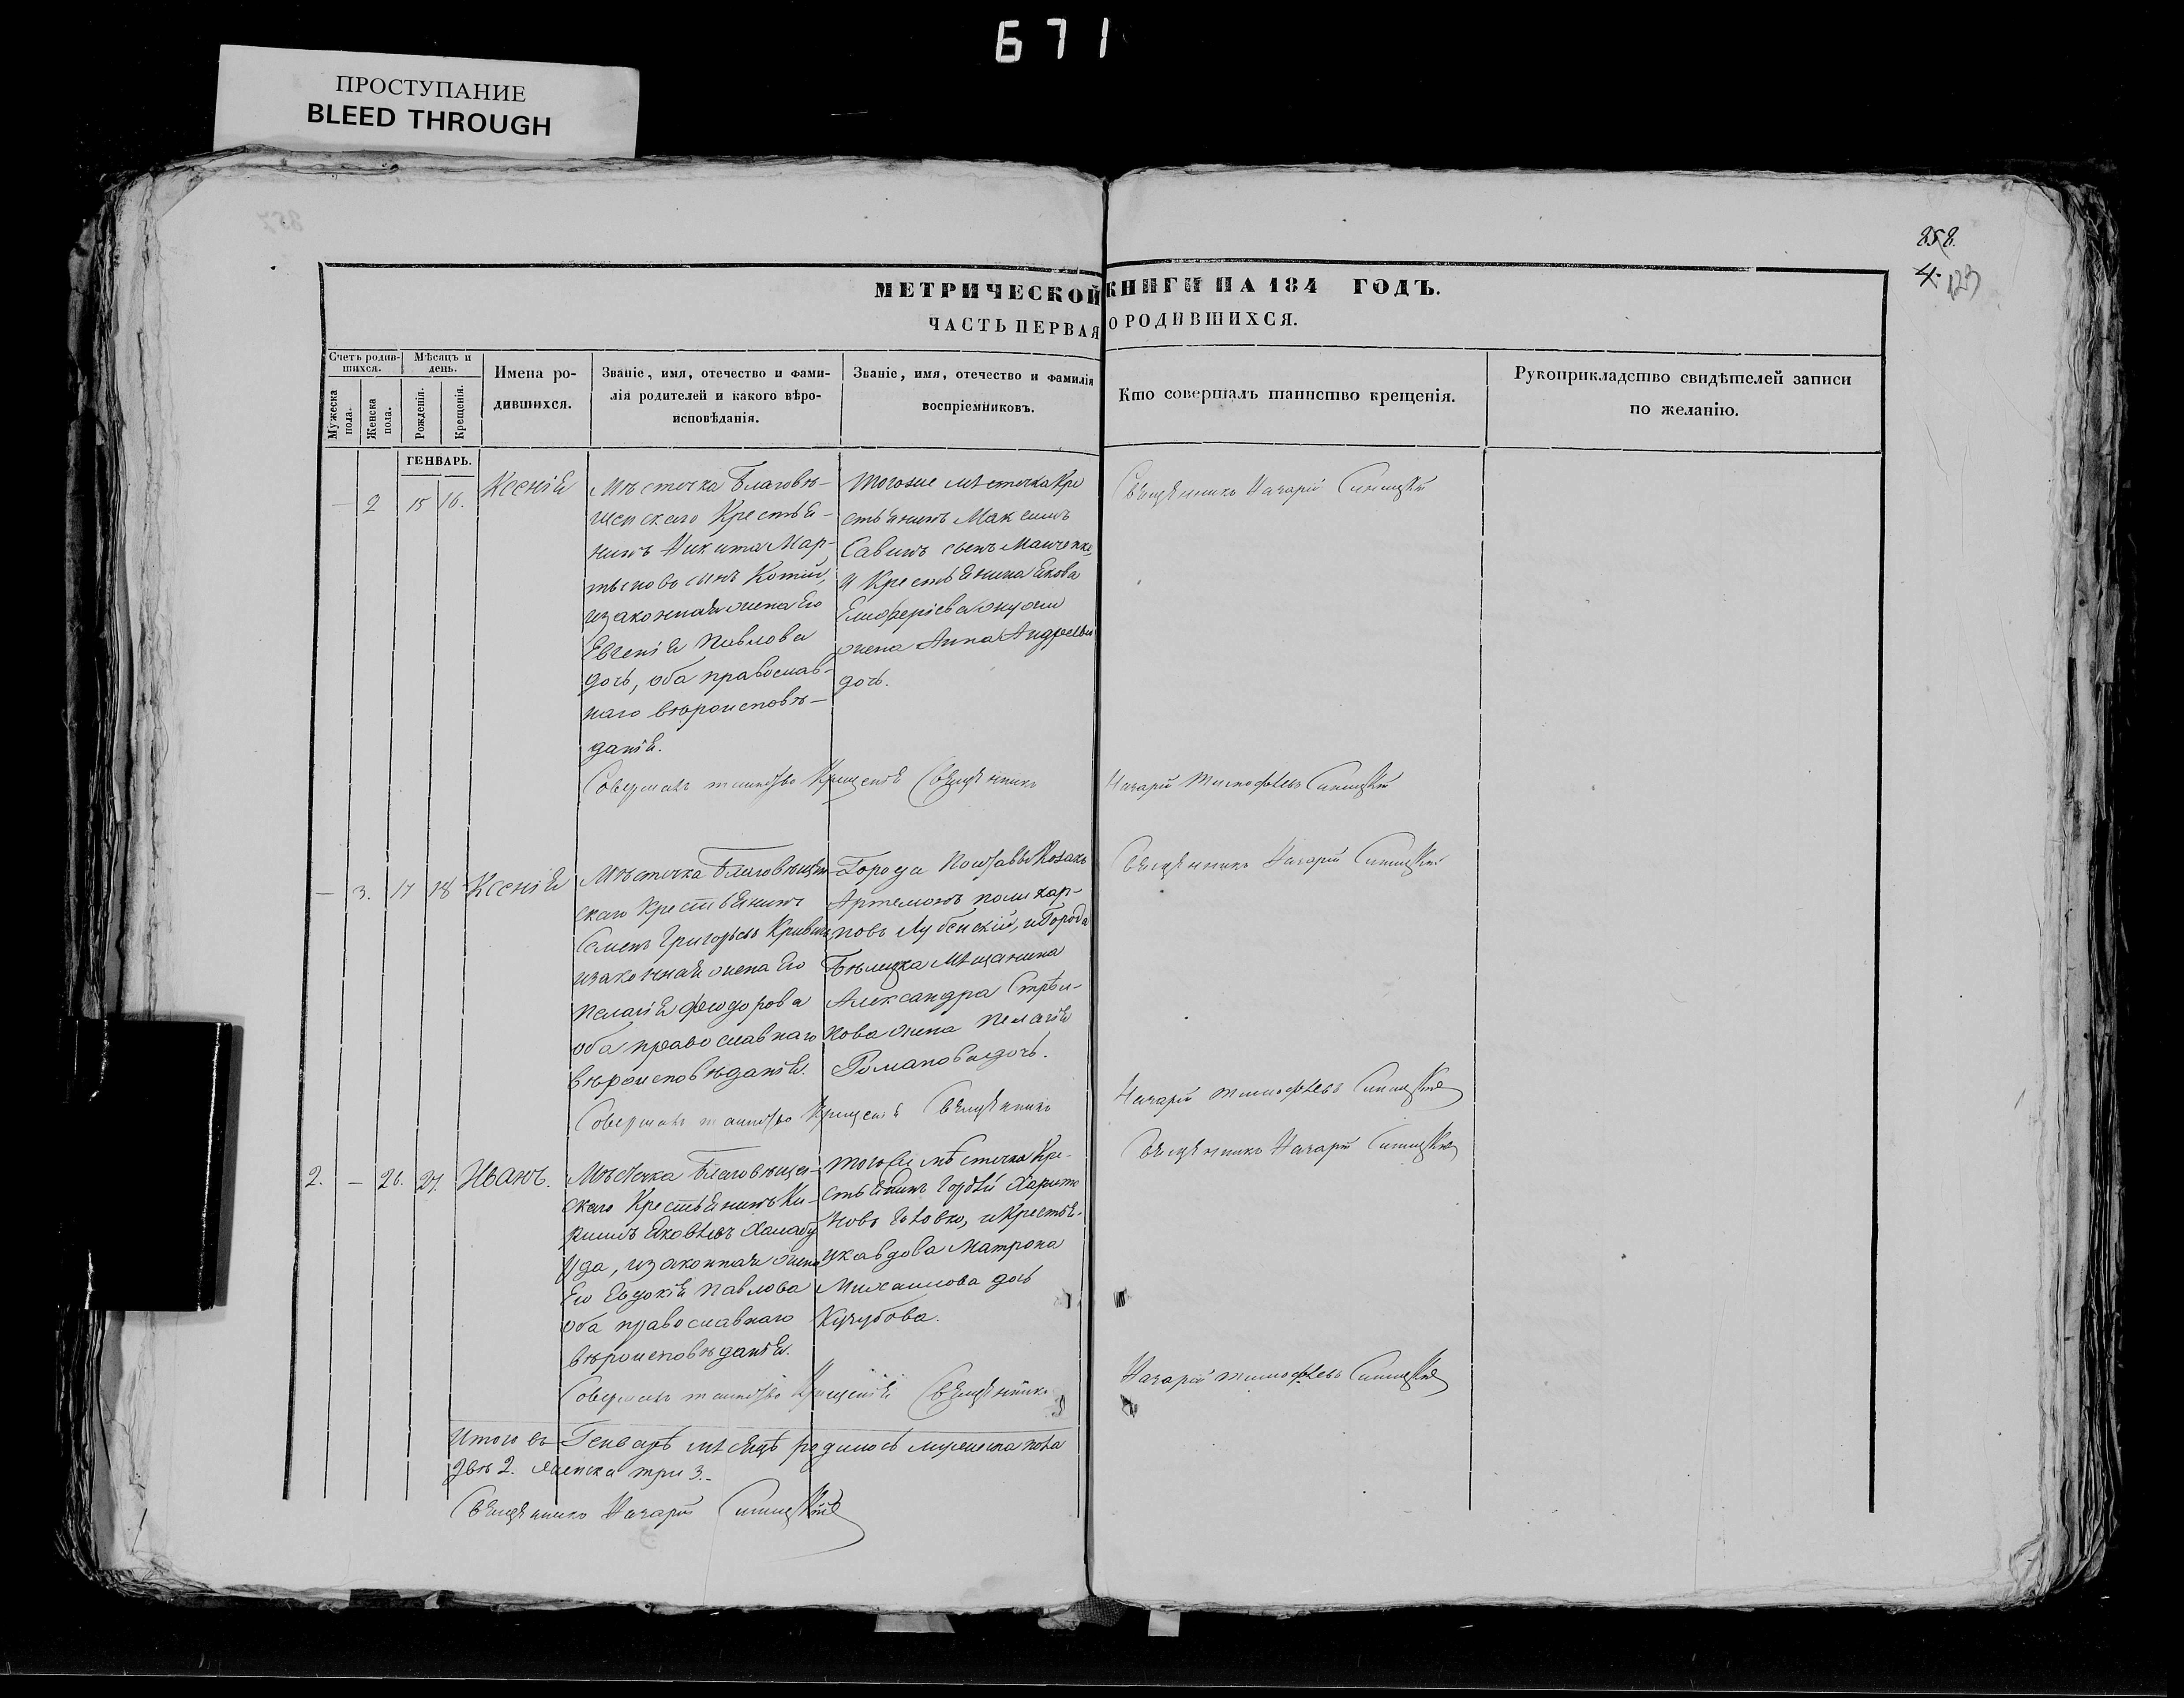 671
ПРОСТУПАНИЕ
BLEED THROUGH
857
858.
4.
123
МЕТРИЧЕСКОЙ КНИГИ НА 184 ГОДЪ.
ЧАСТЬ ПЕРВАЯ О РОДИВШИХСЯ.
Счетъ родив-
шихся.
Мѣсяцъ и
день.
Мужеска
пола.
Женска
пола.
Рожденія.
Крещенія.
Имена ро-
дившихся.
Званіе, имя, отечество и фами-
лія родителей и какого вѣро-
исповѣданія.
Званіе, имя, отечество и фамилія
воспріемниковъ.
Кто совершалъ таинство крещенія.
Рукоприкладство свидѣтелей записи
по желанію.
ГЕНВАРЬ.
— 2 15 16. Ксенія
Мѣстечка Благовѣ-
щенскаго Крестья-
нинъ Никита Мар-
тыновъ сынъ Котій,
и законная жена Его
Евгенія Павлова
дочь, оба православ-
наго вѣроисповѣ-
данія.
Тогоже мѣстечка Кре
стьянинъ Максимъ
Савинъ сынъ
и Крестьянина Якова
жена Анна Андреева
дочь.
Священникъ Назарій Синицкій
Совершалъ таинство Крещенія Священникъ
Назарій Тимофѣевъ Синицкій
— 3. 17 18 Ксенія
Мѣстечка Благовѣщен-
скаго Крестьянинъ
Семенъ Григорьевъ
и законная жена Его
Пелагія Феодорова
оба православнаго
вѣроисповѣданія.
Города Полтавы Козакъ
Артемонъ Поликар-
повъ Лубенскій, и Города
Бѣлицка Мѣщанина
Александра Стрѣл-
кова жена Пелагія
Романова дочь.
Священникъ Назарій Синицкій
Совершалъ таинство Крещенія Священникъ
Назарій Тимофѣевъ Синицкій
2. — 26. 27. Иванъ.
Мѣстечка Благовѣщен-
скаго Крестьянинъ Ки-
рилъ Яковлевъ
и законная жена
Его Евдокія Павлова
оба православнаго
вѣроисповѣданія.
Тогоже мѣстечка Кре-
стьянинъ Гордѣй Харито
новъ и Крестья-
нка вдова Матрона
Михаилова дочь
Кузубова.
Священникъ Назарій Синицкій
Совершалъ таинство Крещенія Священникъ
Назарій Тимофѣевъ Синицкій
Итого въ Генварѣ мѣсяцѣ родилось мужеска пола
два 2. женска три 3.
Священникъ Назарій Синицкій